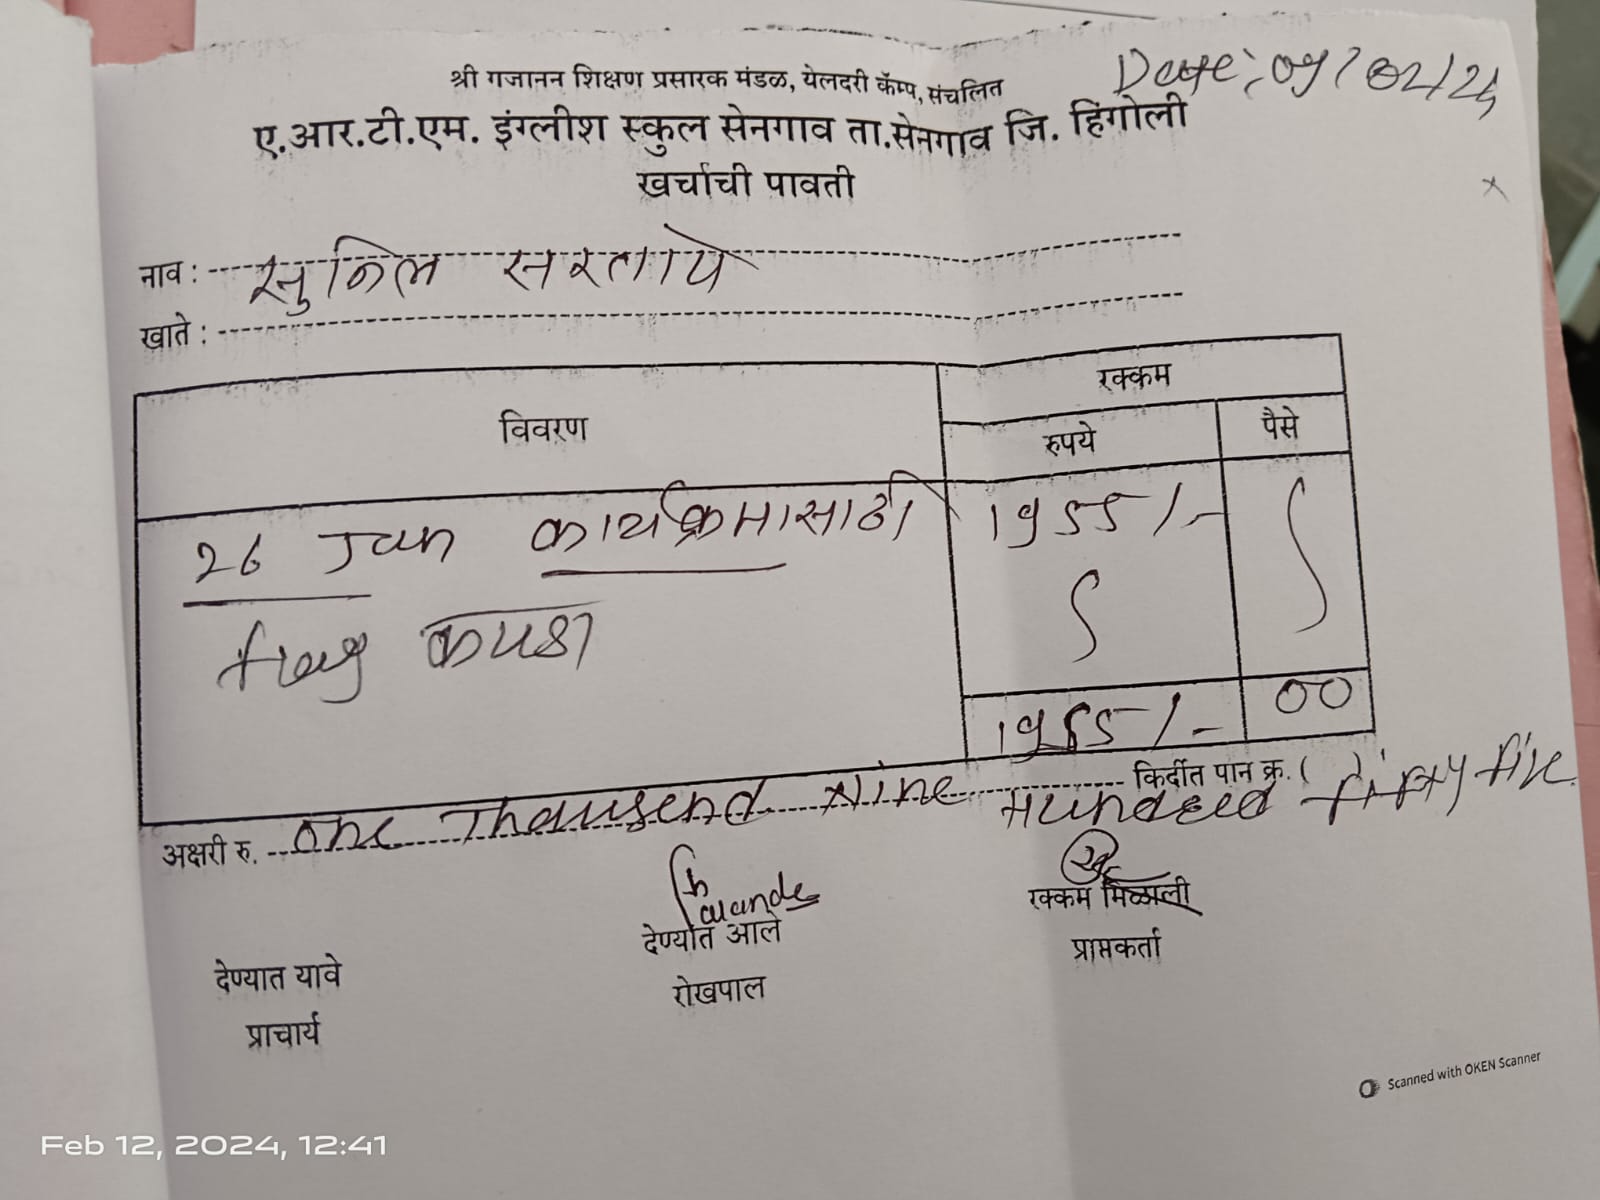 Date: 09/02/24
श्री गजानन शिक्षण प्रसारक मंडळ, येलदरी कॅम्प, संचलित
ए.आर.टी.एम. इंग्लीश स्कुल सेनगाव ता.सेनगाव जि. हिंगोली
खर्चाची पावती
नाव : सुनिल सरताये
खाते :
रक्कम
विवरण रुपये पैसे
26 Jan कार्यक्रमासाठी 1955/-
flag कपडा
1955/- 00
किर्दीत पान क्र. ( )
अक्षरी रु. One Thausend Nine Hundred fifty five
देण्यात आले रक्कम मिळाली
देण्यात यावे रोखपाल प्राप्तकर्ता
प्राचार्य
Scanned with OKEN Scanner
Feb 12, 2024, 12:41